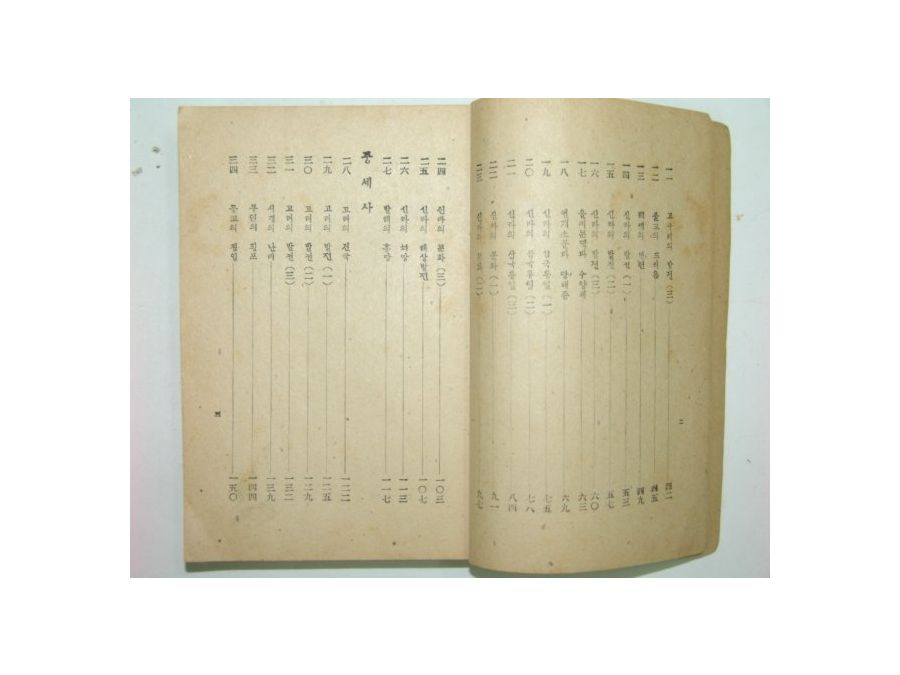 一一 고구려의 발전 (三) 四二
一二 불교의 드러옴 四五
一三 백제의 변천 四九
一四 신라의 발전 (一) 五三
一五 신라의 발전 (二) 五七
一六 신라의 발전 (三) 六〇
一七 을지문덕과 수양제 六三
一八 연개소문과 당태종 六九
一九 신라의 삼국통일 (一) 七五
二〇 신라의 삼국통일 (二) 七八
二一 신라의 삼국통일 (三) 八四
二二 신라의 문화 (一) 九一
二三 신라의 문화 (二) 九七
二
二四 신라의 문화 (三) 一〇三
二五 신라의 해상발전 一〇七
二六 신라의 쇠망 一一三
二七 발해의 흥망 一一七
중세사
二八 고려의 건국 一二二
二九 고려의 발전 (一) 一二五
三〇 고려의 발전 (二) 一二九
三一 고려의 발전 (三) 一三二
三二 서경의 난리 一三九
三三 무인의 횡포 一四四
三四 의 一五〇
三